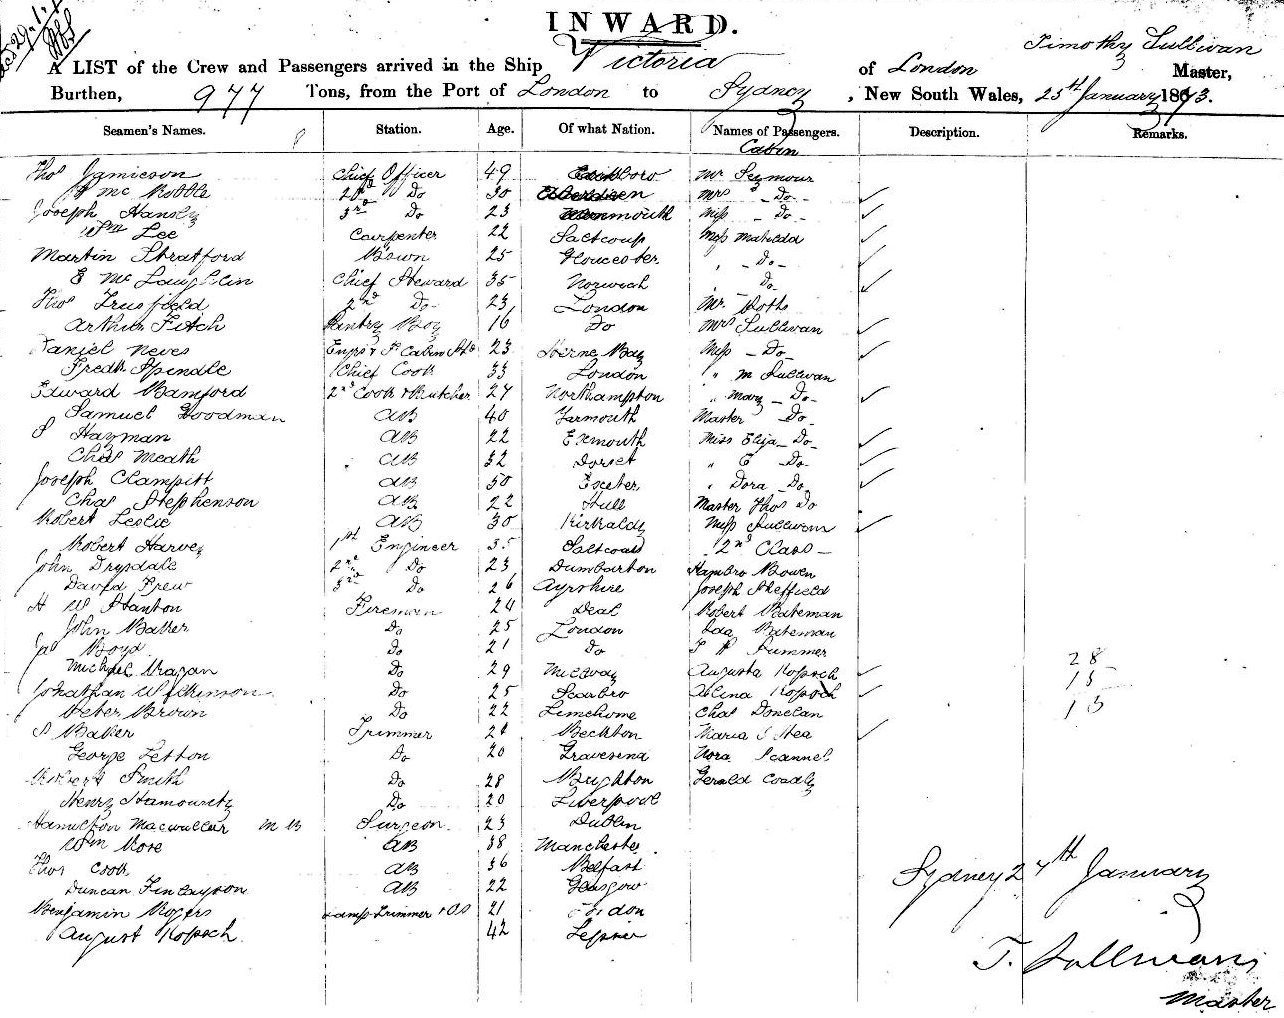 INWARD.
A LIST of the Crew and Passengers arrived in the Ship Victoria of London Timothy Sullivan Master,
Burthen, 977 Tons, from the Port of London to Sydney, New South Wales, 25th January 1873.
Seamen's Names. Station. Age. Of what Nation. Names of Passengers. Description. Remarks.
Cabin
Thos Jamieson Chief Officer 49 Mr Seymour
Mc Robbie 2nd Do 30 Aberdeen Mrs - Do -
Joseph Hansly 3rd Do 23 Monmouth Miss - Do -
Wm Lee Carpenter 22 Saltcoup Miss Matilda
Martin Stratford Bosun 25 Gloucester " - Do -
E McLaughlin Chief Steward 35 Norwich " Do
Thos Truefield 2nd Do 23 London Mr. Potts
Arthur Fitch Pantry Boy 16 Do Mrs Sullivan
Daniel Neves Engrs & F Cabin Std 23 Herne Bay Miss - Do -
Fredk Spindle Chief Cook 33 London " M Sullivan
Edward Bamford 2nd Cook & Butcher 27 Northampton " Mary - Do -
Samuel Goodman AB 40 Yarmouth Master Do
S Hayman AB 22 Exmouth Miss Eliza Do
Chas Meath AB 32 Dorset " E Do
Joseph Clampitt AB 50 Exeter " Dora Do
Chas Stephenson AB 22 Hull Master Thos Do
Robert Leslie AB 30 Kirkaldy Miss Sullivan
Robert Harvey 1st Engineer 35 Saltcoats 2nd Class -
John Drysdale 2nd Do 23 Dumbarton Hambro Bowen
David Frew 3rd Do 26 Ayrshire Joseph Sheffield
H W Stanton Fireman 24 Deal Robert Bateman
John Baker Do 25 London Ida Bateman
Jas Boyd Do 21 Do Summer
Michael Ragan Do 29 Augusta Kopsch 28
Jonathan Wilkinson Do 25 Scarbro Albina Kopsch 15
Peter Brown Do 22 Limehouse Chas Donelan 13
S Baker Trimmer 21 Beckton Maria S Hea
George Letton Do 20 Gravesend Nora Scannel
Robert Smith Do 28 Brighton Gerald Coadly
Henry Hamourty Do 20 Liverpool
Hamilton Macwullur M B Surgeon 23 Dublin
Wm Rose AB 38 Manchester
Thos Cook AB 36 Belfast
Duncan Finlayson AB 22 Glasgow
Benjamin Rogers Lamp Trimmer & OS 21 London
August Kopsch 42
Sydney 27th January
T. Sullivan
Master